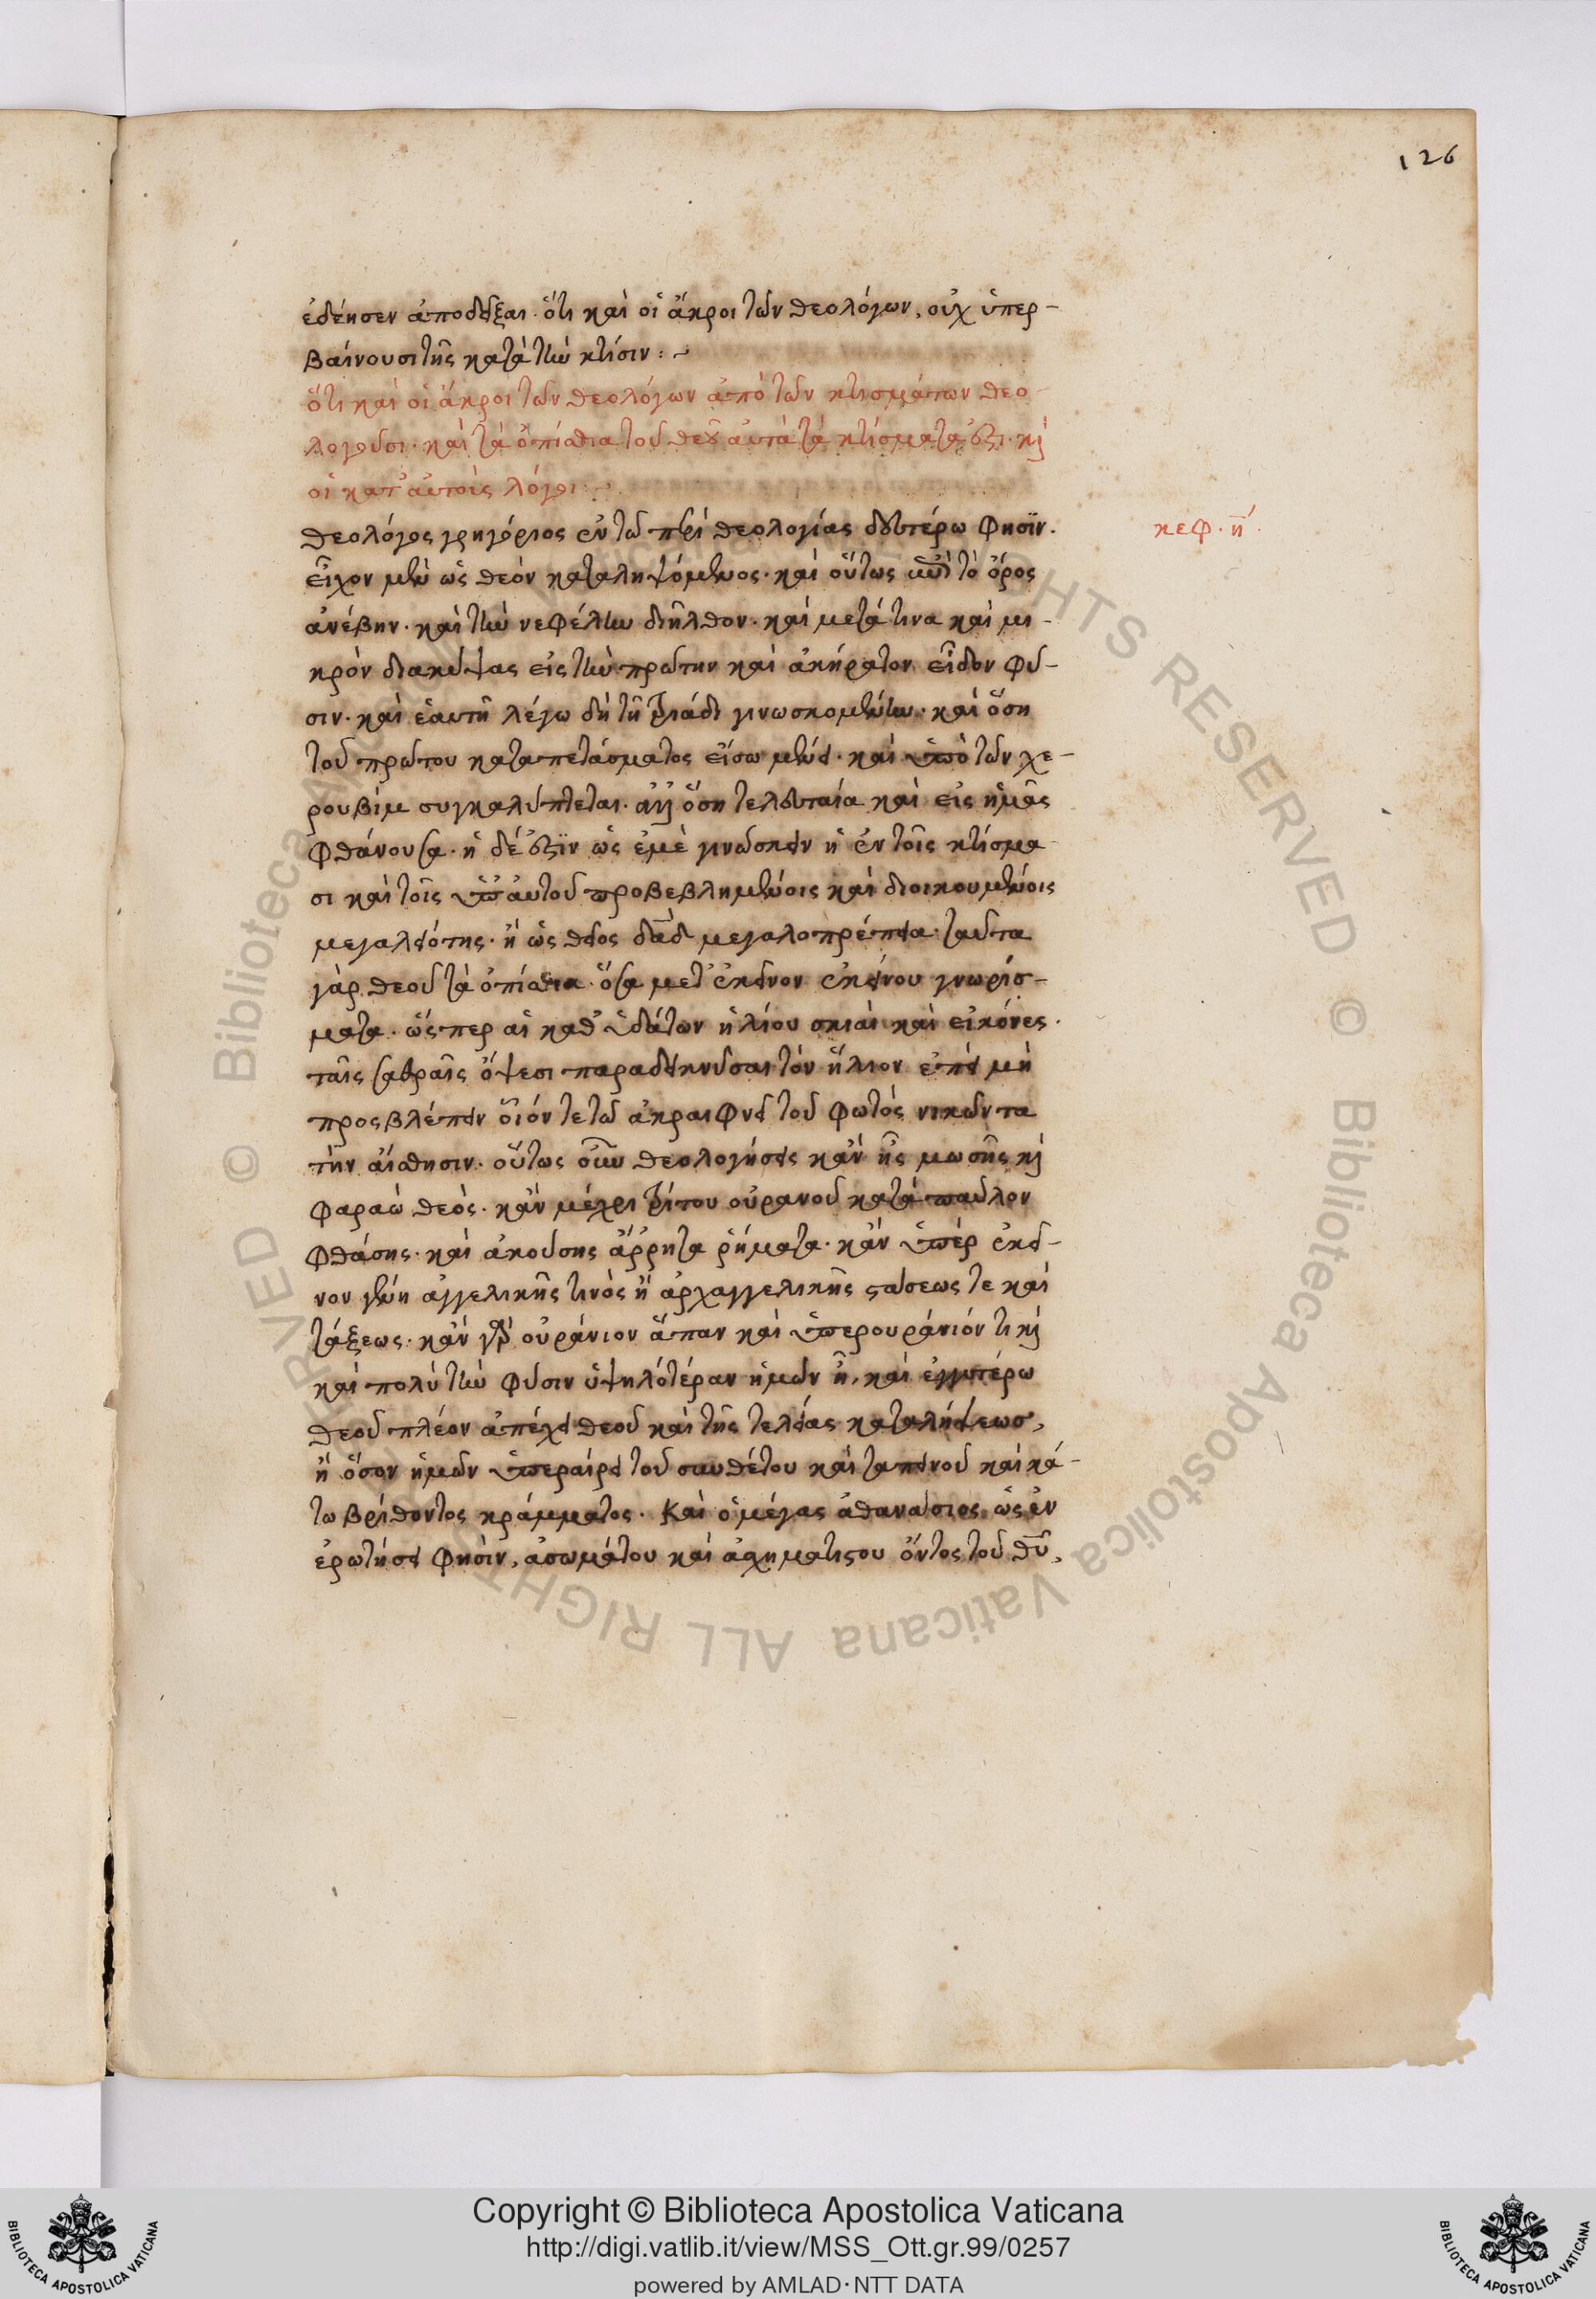 126
ἐδέησεν ἀποδεῖξαι· ὅτι καὶ οἱ ἄκροι τῶν θεολόγων, οὐχ ὑπερ-
βαίνουσι τῆς κατὰ τὴν κτίσιν:~
ὅτι καὶ οἱ ἄκροι τῶν θεολόγων ἀπὸ τῶν κτισμάτων θεο-
λογοῦσι· καὶ τὰ ὀπίσθια τοῦ θεοῦ αὐτὰ τὰ κτίσματά ἐστι· καὶ
οἱ κατ' αὐτοὺς λόγοι:~
θεολόγος γρηγόριος ἐν τῶ περὶ θεολογίας δευτέρω φησίν.
κεφ. η´.
εἶχον μὲν ὡς θεὸν καταληψόμενος· καὶ οὕτως ἐπὶ τὸ ὄρος
ἀνέβην· καὶ τὴν νεφέλην διῆλθον· καὶ μετά τινα καὶ μι-
κρὸν διακύψας εἰς τὴν πρώτην καὶ ἀκήρατον εἶδον φύ-
σιν· καὶ ἑαυτῆ λέγω δὴ τῆ τριάδι γινωσκομένην· καὶ ὅση
τοῦ πρώτου καταπετάσματος εἴσω μένει· καὶ ὑπὸ τῶν χε-
ρουβὶμ συγκαλύπτεται· ἀλλ' ὅση τελευταία καὶ εἰς ἡμᾶς
φθάνουσα· ἡ δέ ἐστιν ὡς ἐμὲ γινώσκειν ἡ ἐν τοῖς κτίσμα-
σι καὶ τοῖς ὑπ' αὐτοῦ προβεβλημένοις καὶ διοικουμένοις
μεγαλειότης· ἢ ὡς θεῖος δαδ μεγαλοπρέπεια· ταῦτα
γὰρ θεοῦ τὰ ὀπίσθια· ὅσα μετ' ἐκεῖνον ἐκείνου γνωρίσ-
ματα· ὥσπερ αἱ καθ' ὑδάτων ἡλίου σκιαὶ καὶ εἰκόνες·
ταῖς σαθραῖς ὄψεσι παραδεικνῦσαι τὸν ἥλιον ἐπεὶ μὴ
προσβλέπειν οἷόν τε τῶ ἀκραιφνεῖ τοῦ φωτὸς νικῶντα
τὴν αἴσθησιν· οὕτως οὖν θεολογήσεις κἂν ἦς μωσῆς καὶ
φαραὼ θεός· κἂν μέχρι τρίτου οὐρανοῦ κατὰ παῦλον
φθάσης· καὶ ἀκούσης ἄρρητα ῥήματα· κἂν ὑπὲρ ἐκεῖ-
νον γένη ἀγγελικῆς τινὸς ἢ ἀρχαγγελικῆς στάσεως τε καὶ
τάξεως· κἂν γὰρ οὐράνιον ἅπαν καὶ ὑπερουράνιόν τι καὶ
καὶ πολὺ τὴν φύσιν ὑψηλότέραν ἡμῶν ἦ, καὶ ἐγγυτέρω
θεοῦ πλέον ἀπέχει θεοῦ καὶ τῆς τελείας καταλήψεως,
ἢ ὅσον ἡμῶν ὑπεραίρει τοῦ συνθέτου καὶ ταπεινοῦ καὶ κά-
τω βρίθοντος κράμματος. Καὶ ὁ μέγας ἀθανάσιος ὡς ἐν
ἐρωτήσει φησὶν, ἀσωμάτου καὶ ἀσχηματίστου ὄντος τοῦ θυ,
Copyright © Biblioteca Apostolica Vaticana
http://digi.vatlib.it/view/MSS_Ott.gr.99/0257
powered by AMLAD·NTT DATA